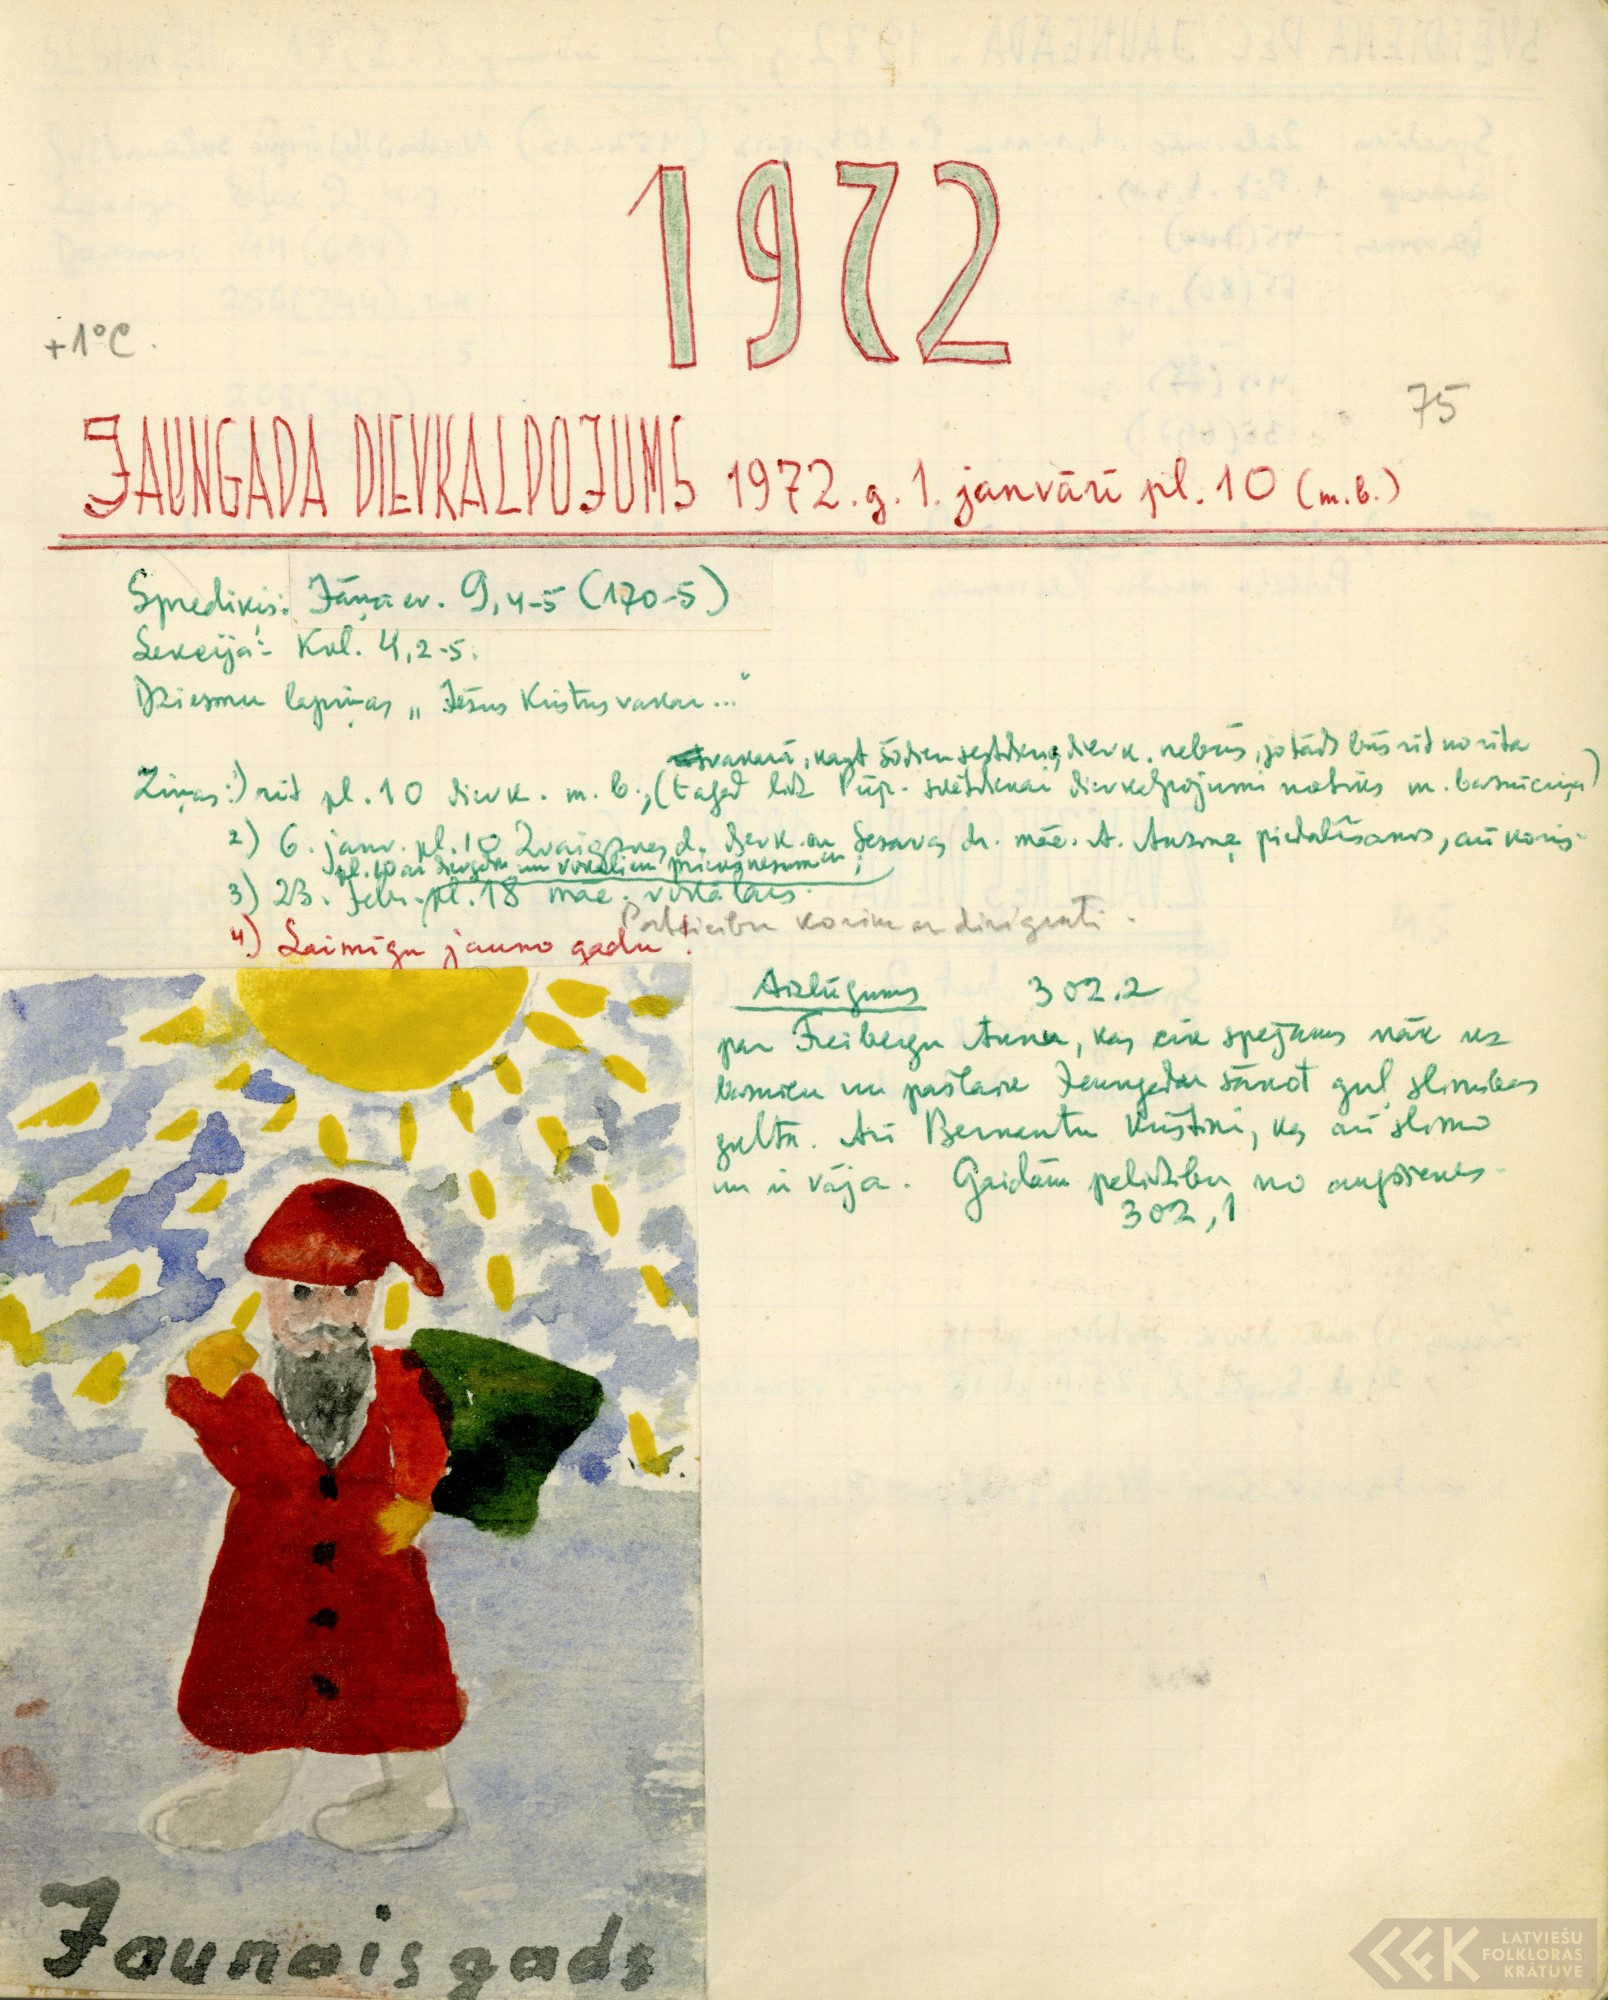 1972
+1°C.
75
JAUNGADA DIEVKALPOJUMS 1972.g. 1. janvārī pl. 10 (m.b.)
Spredikis: Jāņa ev. 9,4-5 (170-5)
Lekcija: Kol. 4,2-5.
Dziesmu lapiņas „Jēzus Kristus vakar..."
vakarā, kaut šodien sestdiena, dievk. nebūs, jo tāds būs rīt no rīta
Ziņas: 1) rīt pl. 10 dievk. m. b., (tagad līdz Pūp. svētdienai dievkalpojumi notiks m. baznīciņā)
2) 6. janv. pl. 10 Zvaigznes d. dievk. ar Lesavas dr. māc. A. piedalīšanos, arī koris.
pl. 10 ar dievgaldu un vokāliem priekšnesumiem;
3) 23. Febr. pl. 18 māc. vokālais.
Pateicību korim ar diriģenti.
4) Laimīgu jauno gadu!
Aizlūgums 302,2
par Freibergu Annu, kas cik spējams nāk uz
baznīcu un pašlaik Jaungadu sākot guļ slimības
gultā. Arī Kristīni, kas arī slimo
un ir vāja. Gaidām palīdzību no augšienes.
302,1
Jaunais gads
LATVIEŠU
FOLKLORAS
KRĀTUVE